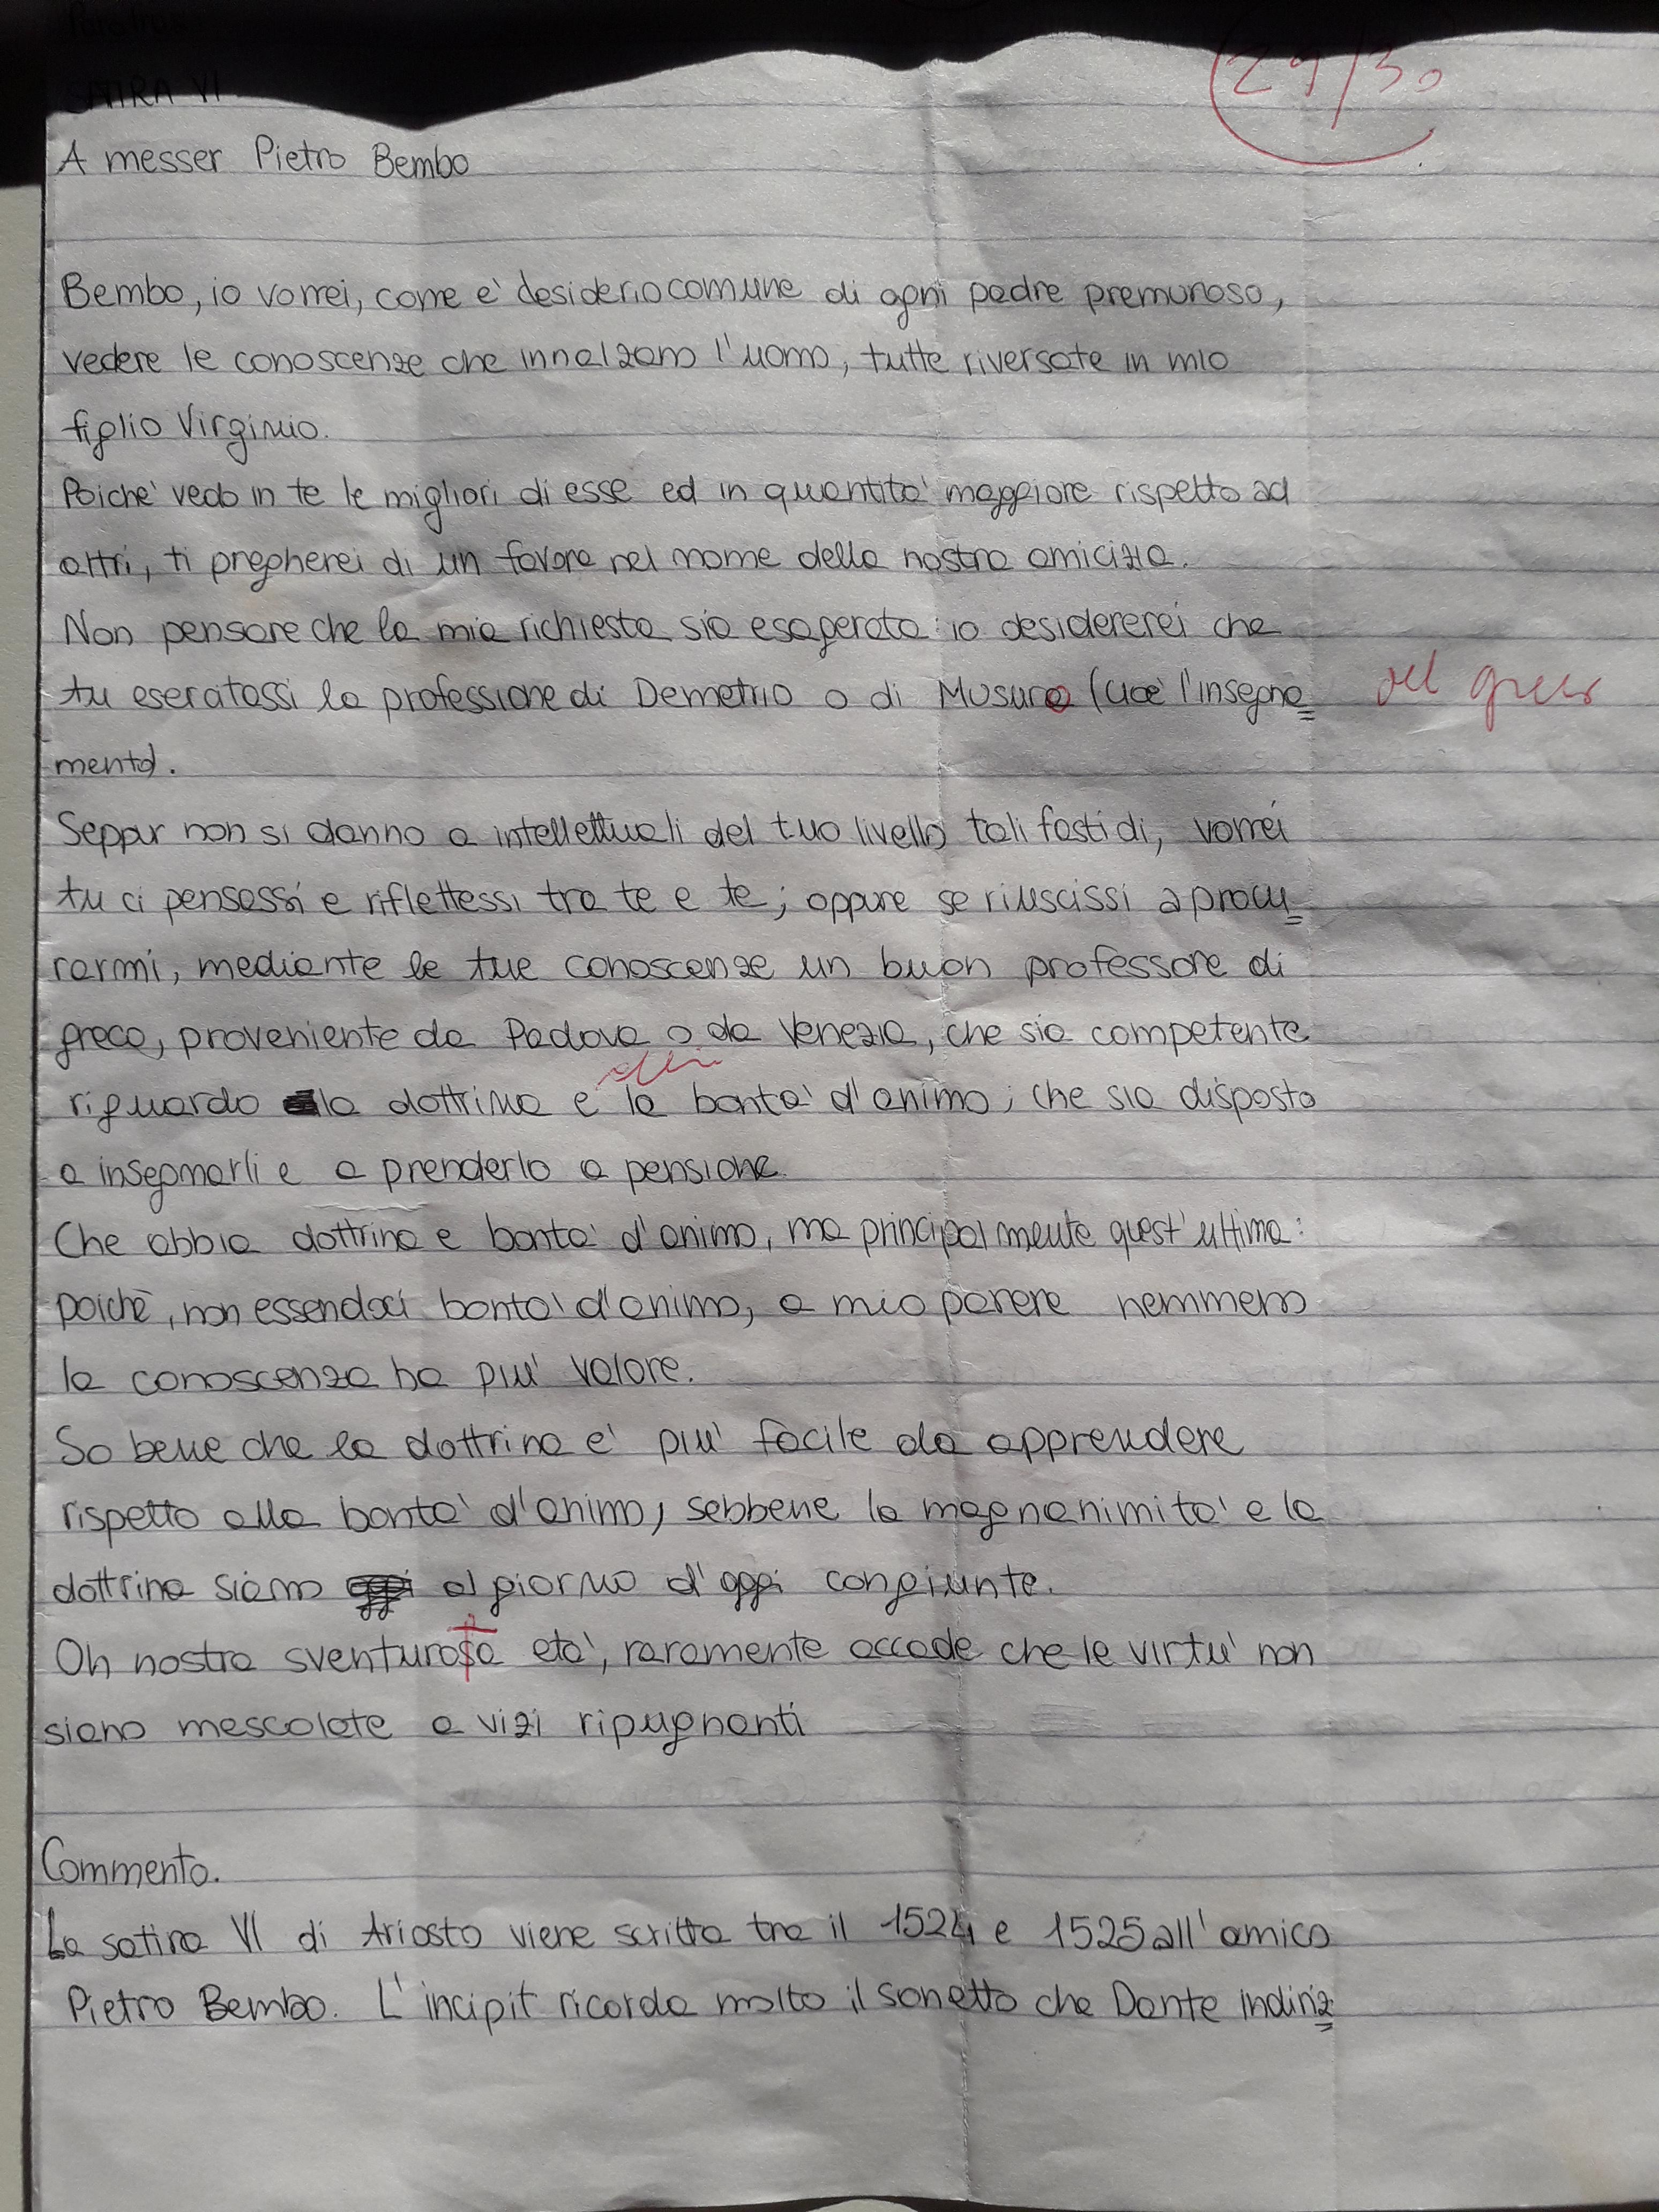 Parafrasi
SATIRA VI
29/30
A messer Pietro Bembo
Bembo, io vorrei, come e' desiderio comune di ogni padre premuroso,
vedere le conoscenze che innalzano l'uomo, tutte riversate in mio
figlio Virginio.
Poiche' vedo in te le migliori di esse ed in quantita' maggiore rispetto ad
altri, ti pregherei di un favore nel nome della nostra amicizia.
Non pensare che la mia richiesta sia esagerata: io desidererei che
tu esercitassi la professione di Demetrio o di Musuro (cioe' l'insegna= del greco
mento).
Seppur non si danno a intellettuali del tuo livello tali fastidi, vorrei
tu ci pensassi e riflettessi tra te e te; oppure se riuscissi a procu=
rarmi, mediante le tue conoscenze un buon professore di
greco, proveniente da Padova o da Venezia, che sia competente
riguardo la dottrina e la bonta' d'animo; che sia disposto
a insegnarli e a prenderlo a pensione.
Che abbia dottrina e bonta' d'animo, ma principalmente quest'ultima:
poichè, non essendoci bonta' d'animo, a mio parere nemmeno
la conoscenza ha piu' valore.
So bene che la dottrina e' piu' facile da apprendere
rispetto alla bonta' d'animo, sebbene la magnanimita' e la
dottrina siano al giorno d'oggi congiunte.
Oh nostra sventurosa eta', raramente accade che le virtu' non
siano mescolate a vizi ripugnanti
Commento.
La satira VI di Ariosto viene scritta tra il 1524 e 1525 all'amico
Pietro Bembo. L'incipit ricorda molto il sonetto che Dante indiriz=